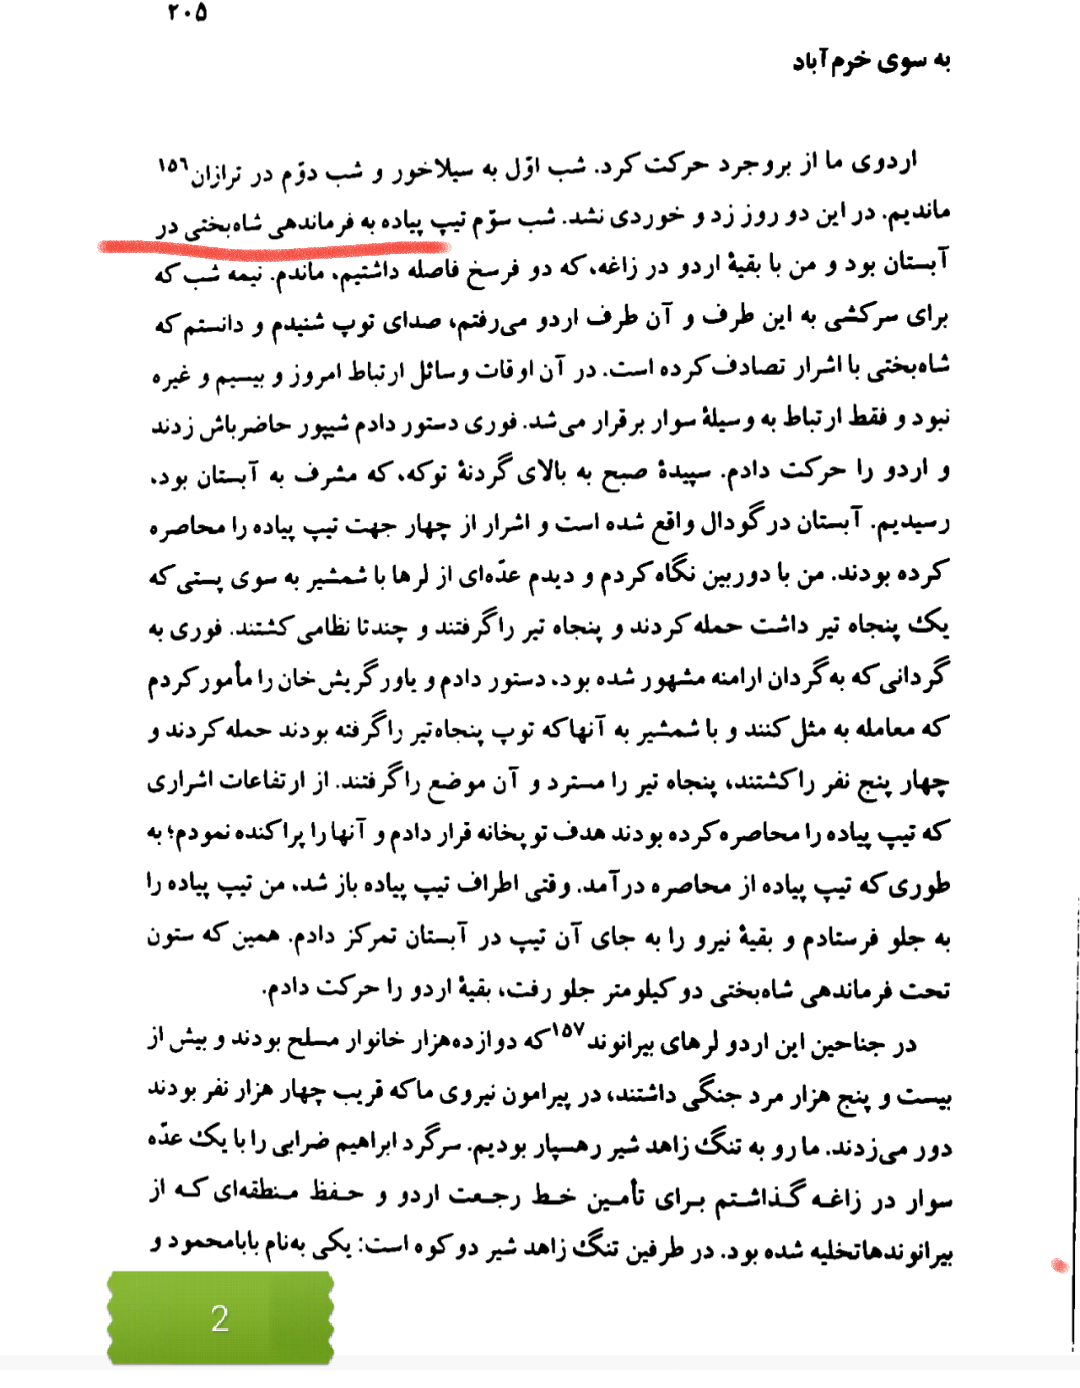 ۲۰۵
به سوی خرم‌آباد
اردوی ما از بروجرد حرکت کرد. شب اوّل به سیلاخور و شب دوّم در ترازان۱۵۶
ماندیم. در این دو روز زد و خوردی نشد. شب سوّم تیپ پیاده به فرماندهی شاه‌بختی در
آبستان بود و من با بقیهٔ اردو در زاغه، که دو فرسخ فاصله داشتیم، ماندم. نیمه شب که
برای سرکشی به این طرف و آن طرف اردو می‌رفتم، صدای توپ شنیدم و دانستم که
شاه‌بختی با اشرار تصادف کرده است. در آن اوقات وسائل ارتباط امروز و بیسیم و غیره
نبود و فقط ارتباط به وسیلهٔ سوار برقرار می‌شد. فوری دستور دادم شیپور حاضرباش زدند
و اردو را حرکت دادم. سپیدهٔ صبح به بالای گردنهٔ توکه، که مشرف به آبستان بود،
رسیدیم. آبستان در گودال واقع شده است و اشرار از چهار جهت تیپ پیاده را محاصره
کرده بودند. من با دوربین نگاه کردم و دیدم عدّه‌ای از لرها با شمشیر به سوی پستی که
یک پنجاه تیر داشت حمله کردند و پنجاه تیر را گرفتند و چندتا نظامی کشتند. فوری به
گردانی که به گردان ارامنه مشهور شده بود، دستور دادم و یاور گریش‌خان را مأمور کردم
که معامله به مثل کنند و با شمشیر به آنها که توپ پنجاه‌تیر را گرفته بودند حمله کردند و
چهار پنج نفر را کشتند، پنجاه تیر را مسترد و آن موضع را گرفتند. از ارتفاعات اشراری
که تیپ پیاده را محاصره کرده بودند هدف توپخانه قرار دادم و آنها را پراکنده نمودم؛ به
طوری که تیپ پیاده از محاصره درآمد. وقتی اطراف تیپ پیاده باز شد، من تیپ پیاده را
به جلو فرستادم و بقیهٔ نیرو را به جای آن تیپ در آبستان تمرکز دادم. همین که ستون
تحت فرماندهی شاه‌بختی دو کیلومتر جلو رفت، بقیهٔ اردو را حرکت دادم.
در جناحین این اردو لرهای بیرانوند۱۵۷ که دوازده‌هزار خانوار مسلح بودند و بیش از
بیست و پنج هزار مرد جنگی داشتند، در پیرامون نیروی ما که قریب چهار هزار نفر بودند
دور می‌زدند. ما رو به تنگ زاهد شیر رهسپار بودیم. سرگرد ابراهیم ضرابی را با یک عدّه
سوار در زاغه گذاشتم برای تأمین خط رجعت اردو و حفظ منطقه‌ای که از
بیرانوندها تخلیه شده بود. در طرفین تنگ زاهد شیر دو کوه است: یکی به‌نام بابامحمود و
2